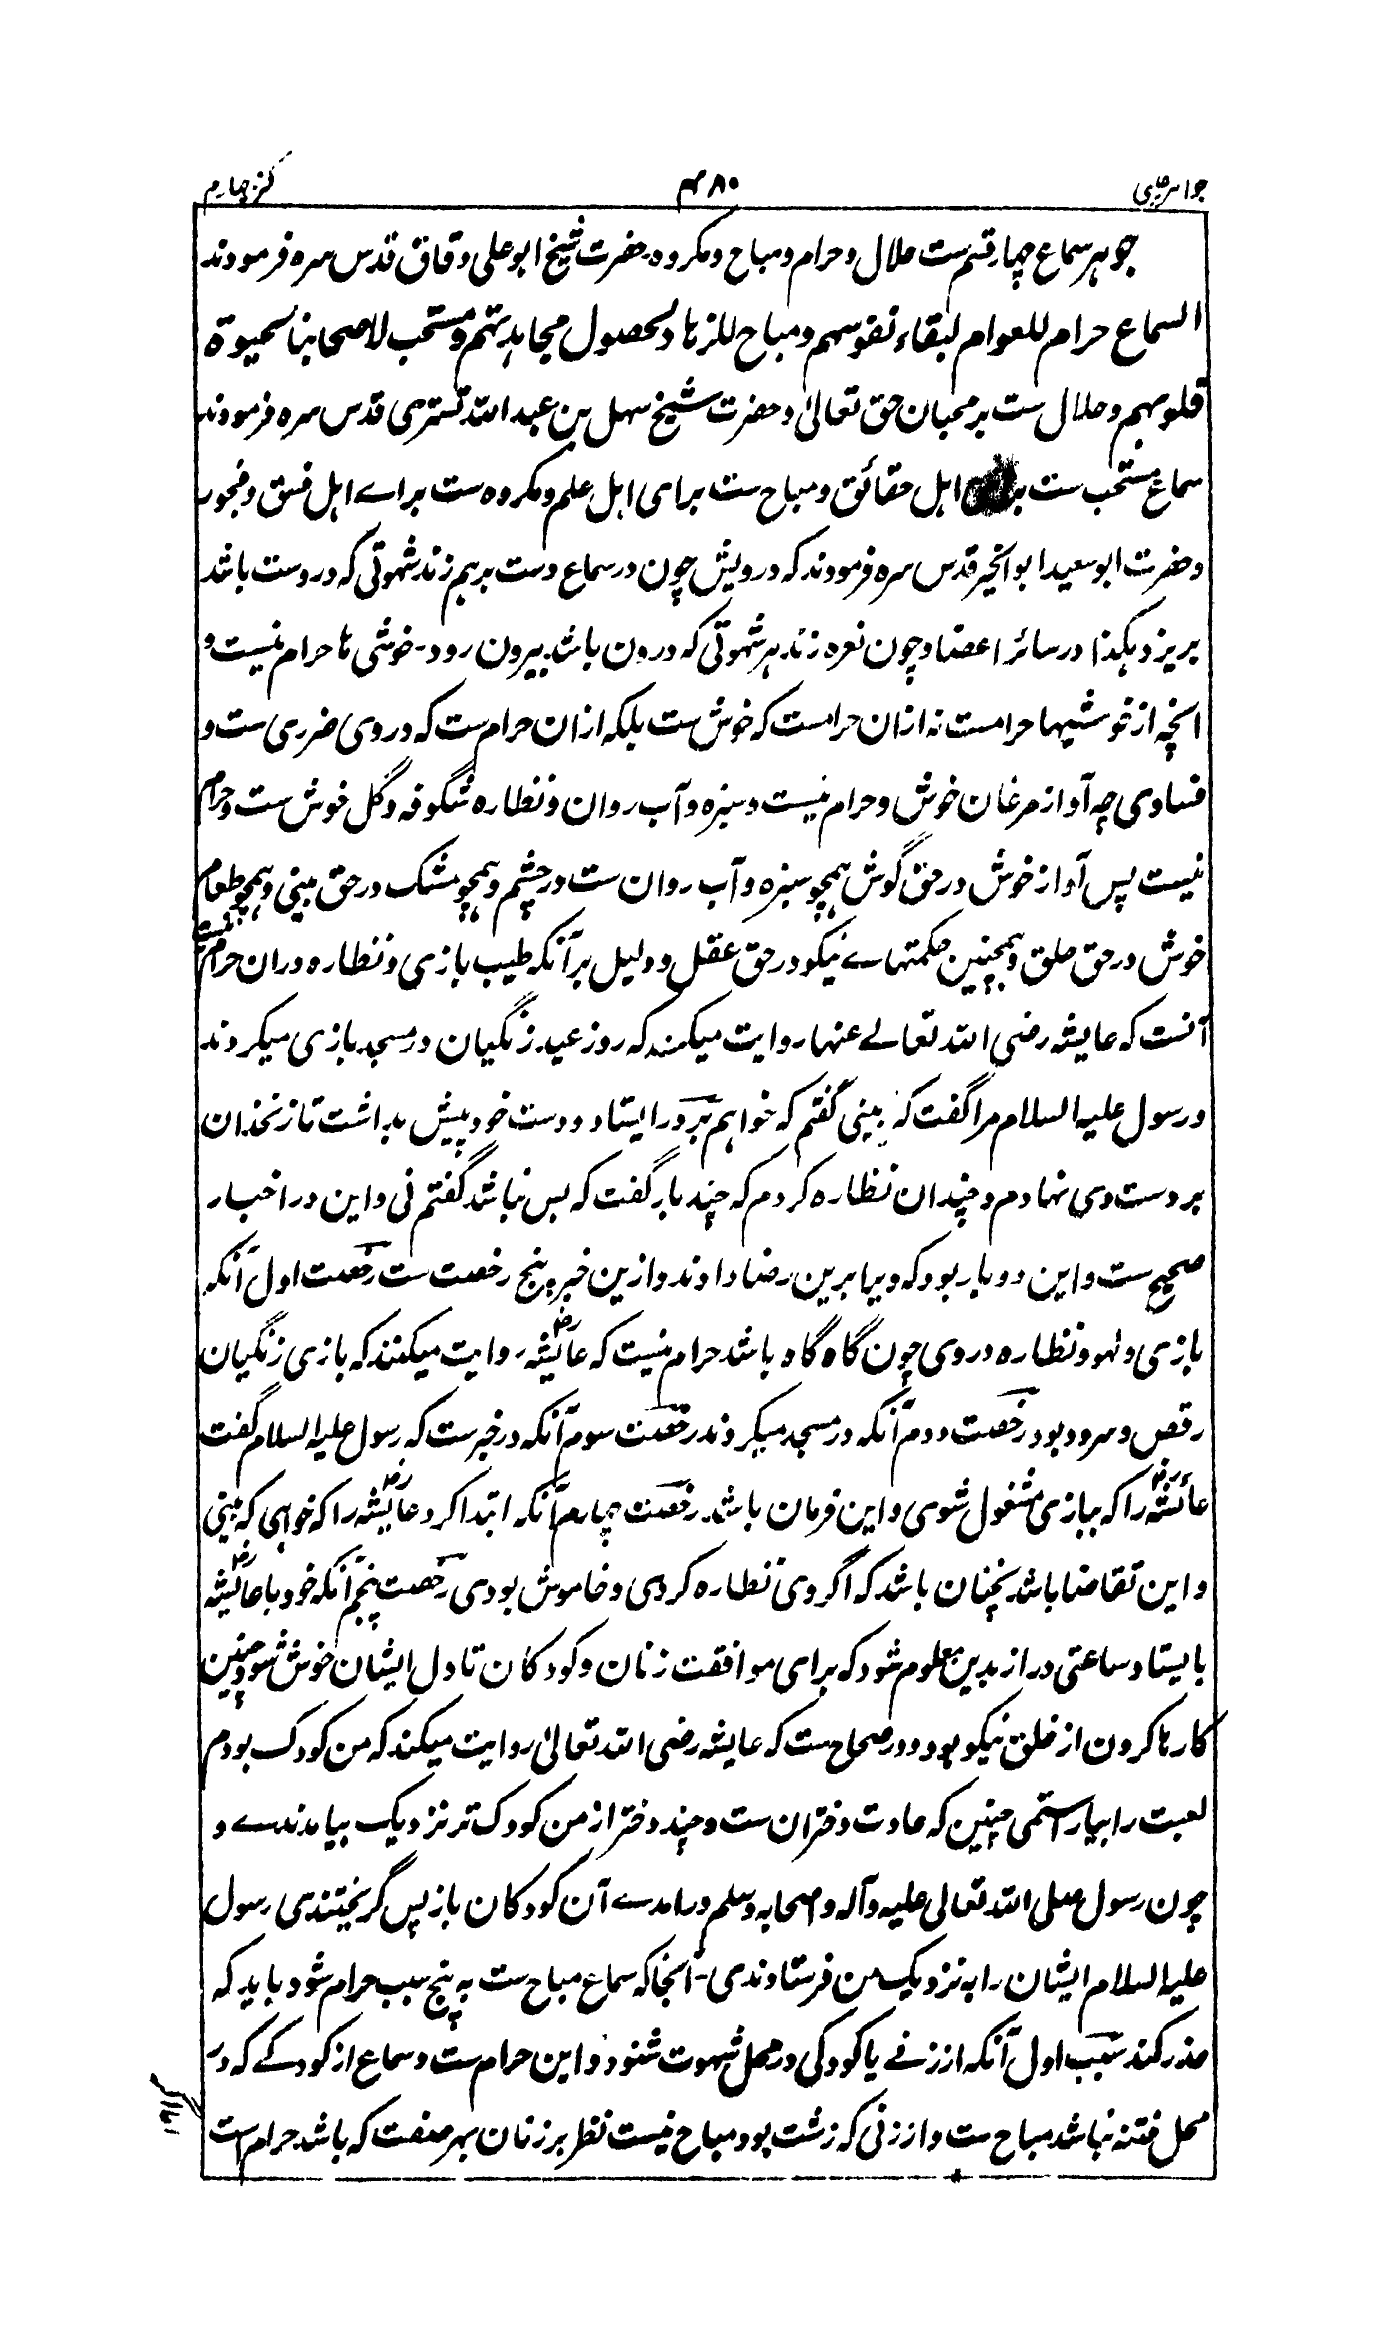 جواهر غیبی
۴۸۰
کنز چهارم
جوهر سماع چهار قسم ست حلال و حرام و مباح و مکروه۔ حضرت شیخ ابو علی دقاق قدس سره فرمودند
السماع حرام للعوام لبقاء نفوسهم و مباح للزهاد لحصول مجاهدتهم و مستحب لاصحابنا لحیوة
قلوبهم و حلال ست بر محبان حق تعالیٰ و حضرت شیخ سهل بن عبد الله تستری قدس سره فرمودند
سماع مستحب ست اهل حقائق و مباح ست برای اهل علم و مکروه ست براے اهل فسق و فجور
و حضرت ابو سعید ابو الخیر قدس سره فرمودند که درویش چون در سماع دست برهم زند شهوتی که در دست باشد
بریزد و هکذا در سائر اعضا و چون نعره زند هر شهوتی که درون باشد بیرون رود۔ خوشی ها حرام نیست و
انچه از خوشیها حرامست نه ازان حرامست که خوش ست بلکه ازان حرام ست که در وی ضرری ست و
فسادی چه آواز مرغان خوش و حرام نیست و سبزه و آب روان و نظاره شگوفه و گل خوش ست و حرام
نیست پس آواز خوش در حق گوش همچو سبزه و آب روان ست در چشم و همچو مشک در حق بینی و همچو طعام
خوش در حق حلق و همچنین حکمتهاے نیکو در حق عقل و دلیل بر آنکه طیب بازی و نظاره دران حرام نیست
آنست که عایشه رضی الله تعالے عنها روایت میکند که روز عید زنگیان در مسجد بازی میکردند
و رسول علیه السلام مرا گفت که بینی گفتم که خواهم بر در ایستاد و دست خود پیش بداشت تا زنخدان
بر دست وی نهادم و چندان نظاره کردم که چند بار گفت که بس نباشد گفتم نی و این در اخبار
صحیح ست و این دو بار بود که ویرا برین رضا دادند و ازین خبر پنج رخصت ست رخصت اول آنکه
بازی و لهو و نظاره در وی چون گاه گاه باشد حرام نیست که عائیشه رض روایت میکنند که بازی زنگیان
رقص و سرود بود رخصت دوم آنکه در مسجد میکردند رخصت سوم آنکه در خبر ست که رسول علیه السلام گفت
عائشه رض را که ببازی مشغول شوی و این فرمان باشد رخصت چهارم آنکه ابتدا کرد عائیشه رض را که خواهی که بینی
و این تقاضا باشد نچنان باشد که اگر وی نظاره کردی و خاموش بودی رخصت پنجم آنکه خود با عائیشه رض
بایستاد ساعتی دراز بدین معلوم شود که برای موافقت زنان و کودکان تا دل ایشان خوش شود چنین
کارها کردن از خلق نیکو بود و در صحاح ست که عایشه رضی الله تعالیٰ روایت میکند که من کودک بودم
لعبت را بیاراستمی چنین که عادت دختران ست و چند دختر از من کودک تر نزدیک بیامدندے و
چون رسول صلی الله تعالی علیه و آله و اصحابه وسلم درامدے آن کودکان باز پس گریختندی رسول
علیه السلام ایشان را به نزدیک من فرستادندی۔ آنجا که سماع مباح ست به پنج سبب حرام شود باید که
حذر کند سبب اول آنکه از زنے یا کودکی در محل شهوت شنود و این حرام ست و سماع از کودکے که در
محل فتنه نباشد مباح ست و از زنی که زشت بود مباح نیست نظر بر زنان بهر صفت که باشد حرام است